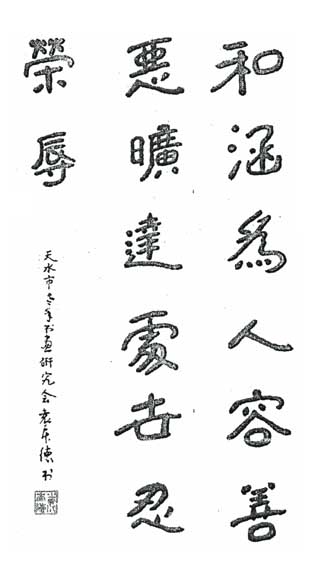 和涵為人容善
惡曠達處世忍
榮辱
天水市老年书画研究会